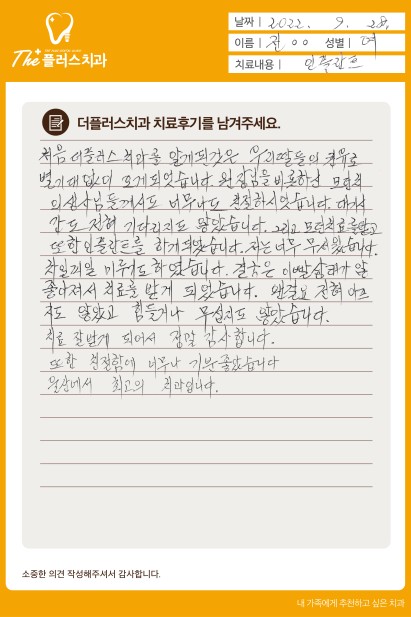 날짜 2022. 9. 28.
이름 전○○ 성별 여
치료내용 임플란트
THE PLUS DENTAL CLINIC
The+플러스치과
더플러스치과 치료후기를 남겨주세요.
처음 더플러스 치과를 알게된것은 우리딸들의 권유로
별기대없이 오게되었습니다. 원장님을 비롯하신 모든
의사님들께서도 너무나도 친절하시었습니다. 대기시
간도 전혀 기다리지도 않았습니다. 그리고 모든치료를받고
또한 인플란트를 하게되었습니다. 저는 너무 무서웠습니다.
차일피일 미루기도 하였습니다. 결국은 이빨상태가 안
좋아져서 치료를 받게 되었습니다. 왠걸요 전혀 아프
지도 않았고 힘들거나 무섭지도 않았습니다.
치료 잘받게 되어서 정말 감사합니다.
또한 친절함에 너무나 기분좋았습니다
울산에서 최고의 치과입니다.
소중한 의견 작성해주셔서 감사합니다.
내 가족에게 추천하고 싶은 치과